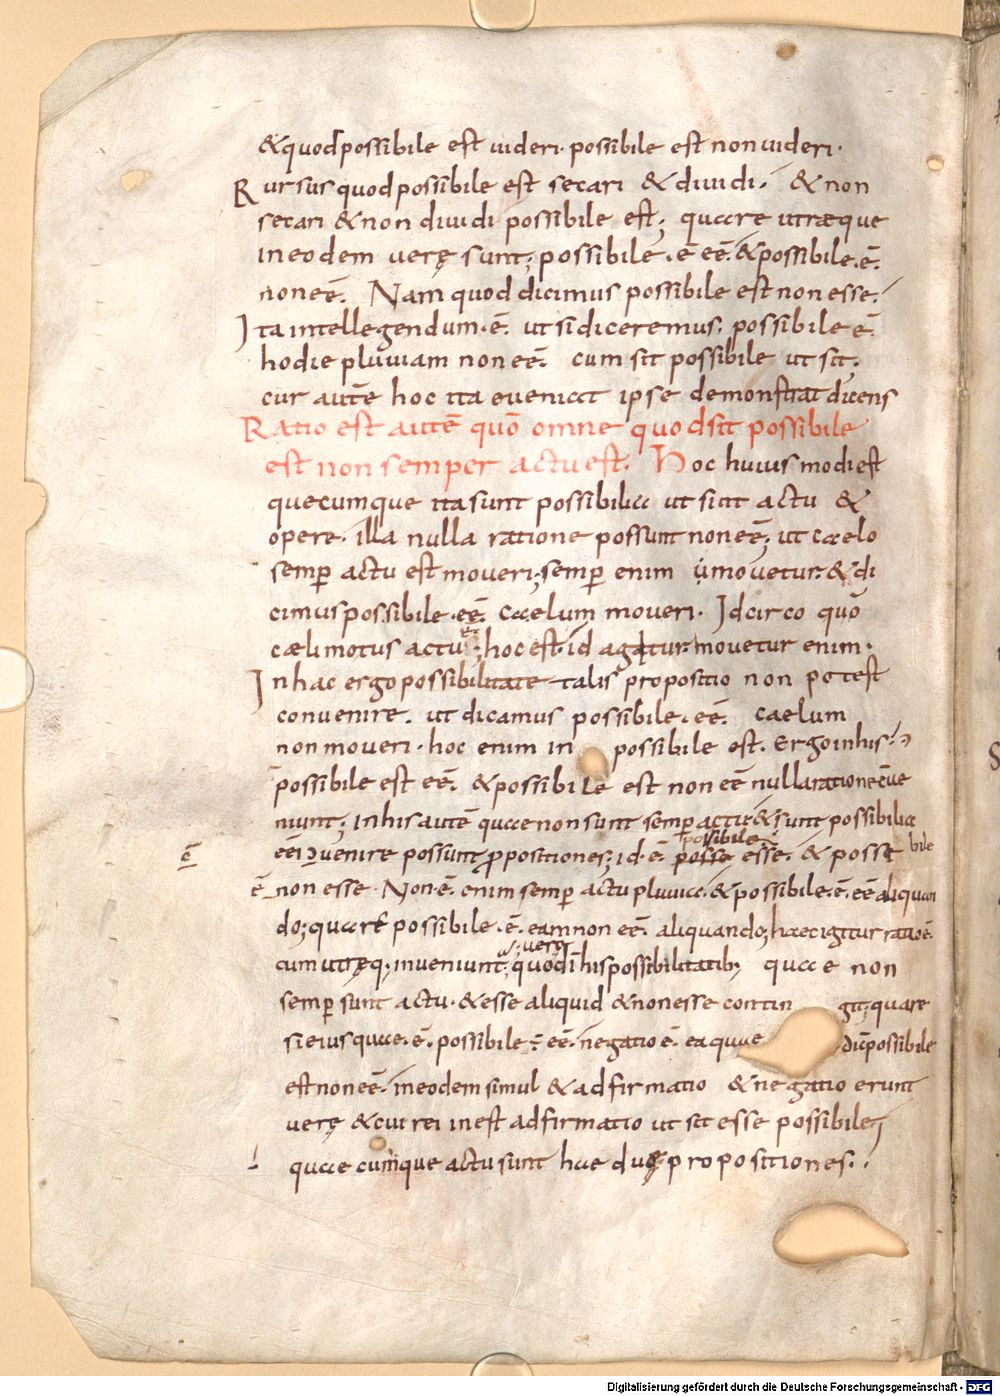 &quod possibile est uideri. possibile est non uideri.
Rursus quod possibile est secari & diuidi. & non
secari & non diuidi possibile est; quare utraeque
in eodem uerę sunt; possibile. ē eē. & possibile. ē.
non eē. Nam quod dicimus possibile est non esse.
Ita intellegendum. ē. ut si diceremus. possibile ē.
hodie pluuiam non eē. cum sit possibile ut sit.
cur autē hoc ita eueniat ipse demonstrat dicens
Ratio est autē quō omne quod sit possibile
est non semper actu est. Hoc huius modi est
quecumque ita sunt possibilia ut sint actu &
opere. illa nulla ratione possunt non eē; ut caelo
semp actu est moueri; semp enim mouetur. & di
cimus possibile. eē. caelum moueri. Idcirco quō
cæli motus actu ē; hoc est. id agatur. mouetur enim.
In hac ergo possibilitate talis propositio non potest
conuenire. ut dicamus possibile. eē. caelum
non moueri. hoc enim in possibile est. Ergo in his
possibile est eē. & possibile est non eē nulla ratione
niunt; in his autē quae non sunt semp actu & sunt possibilia
possibile
eē ɔuenire possunt ppositiones; id. ē. posse esse. & posse bile
ē
ē non esse. Non. ē. enim semp actu pluuia. & possibile. ē. eē aliquan
do; quare possibile. ē. eam non eē. aliquando; haec igitur ratio ē.
uero
cum utręq; inueniunt; quod in his possibilitatib; quae non
semp sunt actu. & esse aliquid & non esse contin git; quare
si eius quae. ē. possibile eē. negatio ē. ea quae dicit possibile
est non eē. in eodem simul & adfirmatio & negatio erunt
uerę & cui rei inest adfirmatio ut sit esse possibile;
quae cumque actu sunt hae duę propositiones.
Digitalisierung gefördert durch die Deutsche Forschungsgemeinschaft - DFG